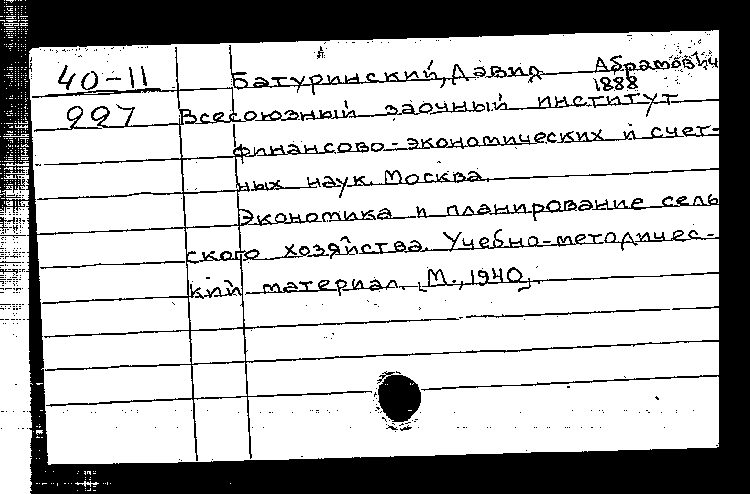 40-11 Батуринский, Давид Абрамович
1888
997 Всесоюзный заочный институт
финансово-экономических и счет-
ных наук. Москва.
Экономика и планирование сель
ского хозяйства. Учебно-методичес-
кий материал. [М., 1940].